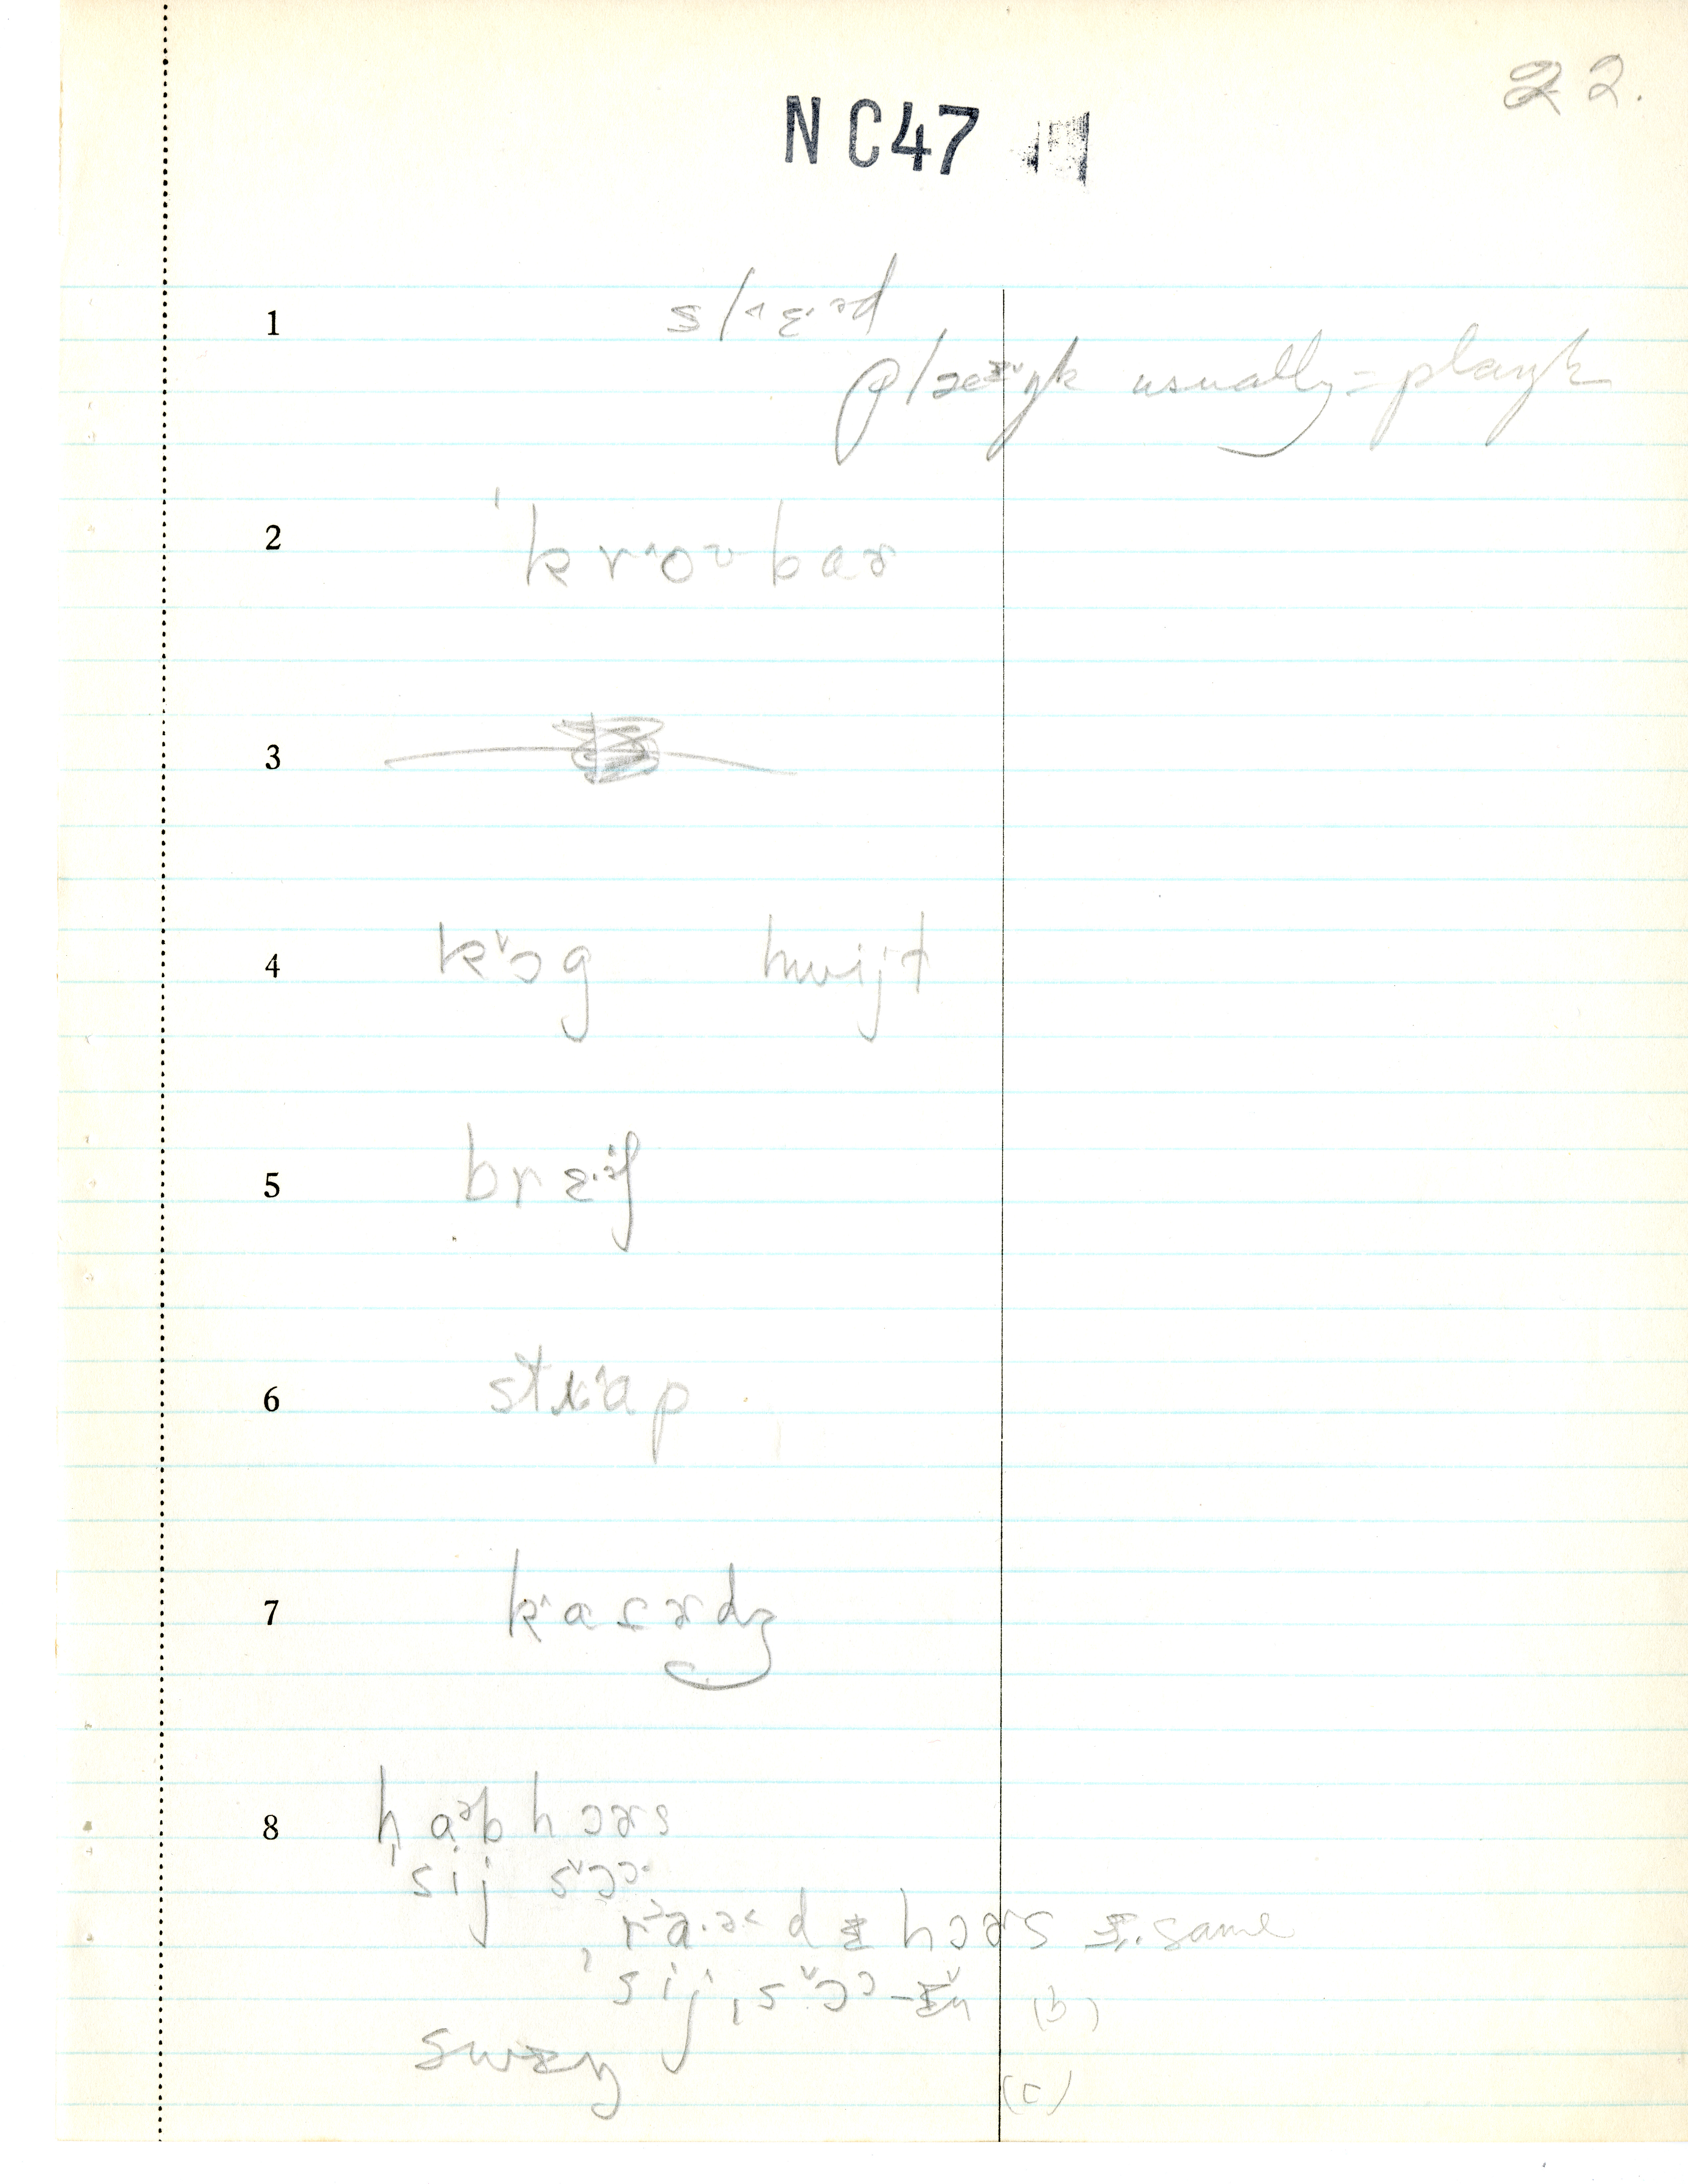 22.
NC47
1 sl˄ɛ·ᵊd
plæᶻ˅ŋk usually = plaŋk
2 ˈkr˄oʊbaɚ
3
4 k˅ɔg hwijt
5 brɛ·ᵊʃ
6 str˄ap
7 k˄aɾɚdʒ
8 haᵊbhɔɚs
ˈsij s˅ɔɔ·
r˃a·ɚ˂dɪ hɔɚs ɪz same
ˈsijˌs˅ɔɔ-ɪ˅ŋ (b)
swɪŋ
(c)